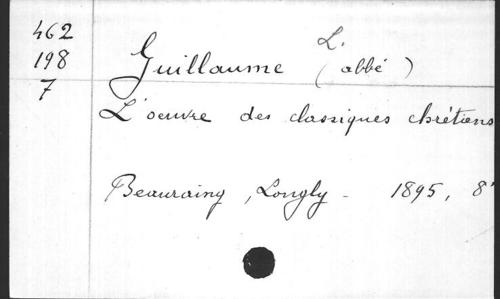 462
198
7
Guillaume (L. abbé)
L'oeuvre des classiques chrétiens
Beauraing, Longly - 1895, 8°